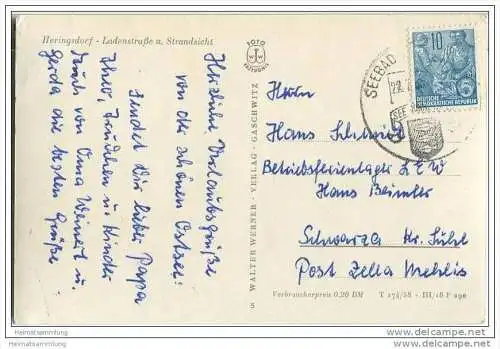 Heringsdorf - Ladenstraße u. Strandsicht
Herzliche Urlaubsgrüße
von der schönen Ostsee!
Sendet Dir lieber Papa
Theo, Trudchen u. Kinder
Auch von Oma Weinert u.
Gerda die besten Grüße
FOTO
WALTER WERNER - VERLAG - GASCHWITZ
5
SEEBAD
10
DEUTSCHE
DEMOKRATISCHE REPUBLIK
Herrn
Hans Schmidt
Betriebsferienlager LEW
Hans Beimler
Schwarza Kr. Suhl
Post Zella Mehlis
Verbraucherpreis 0.20 DM T 174/58 - III/18 F 290
Heimatsammlung
Heimatsammlung